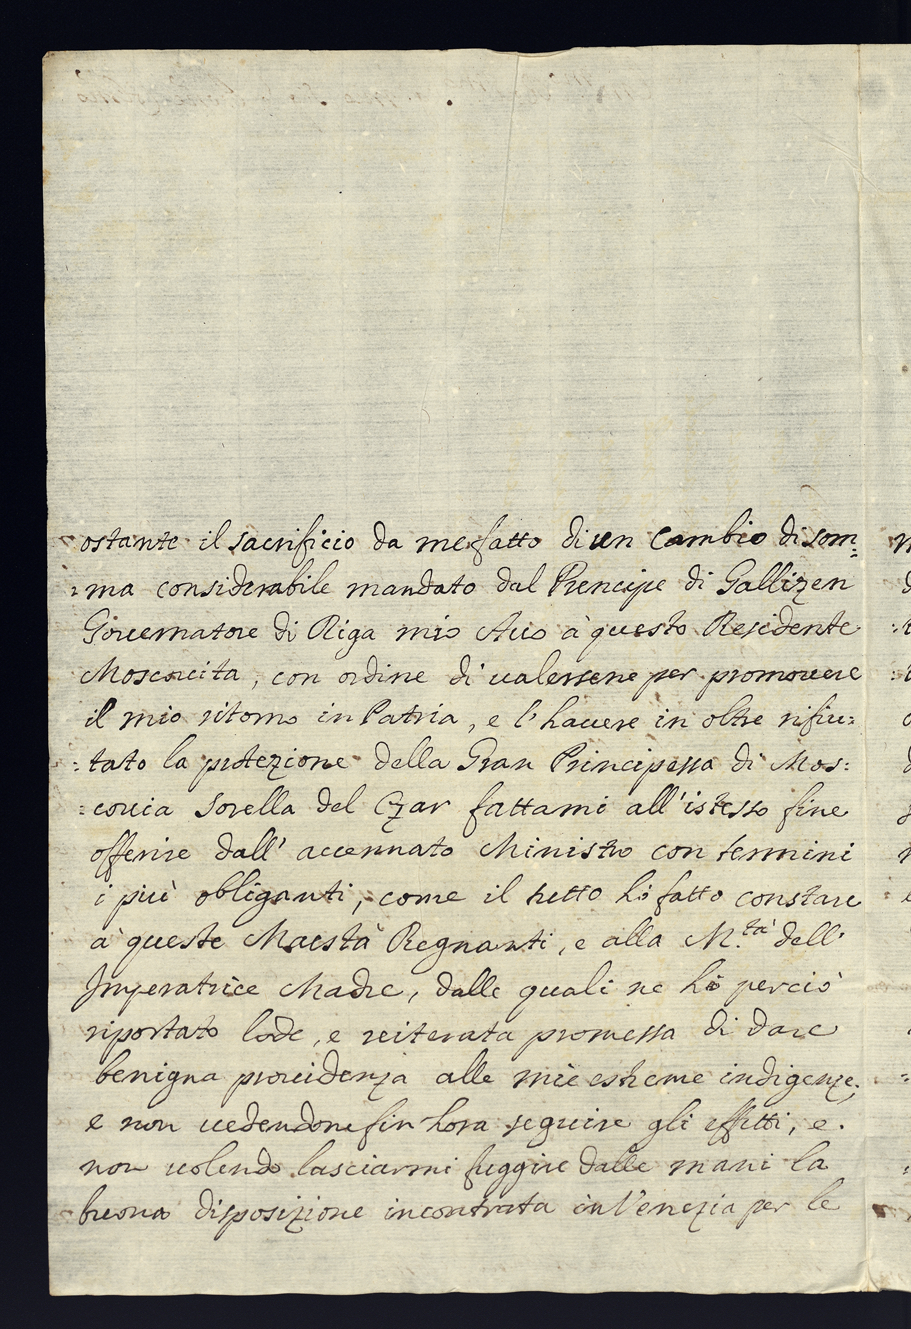 ostante il sacrificio da me fatto di un cambio di som=
=ma considerabile mandato dal Prencipe di Gallizen
Governatore di Riga mio Avo à questo Residente
Moscovita, con ordine di valersene per promovere
il mio ritorno in Patria, e l'havere in oltre rifiu=
=tato la protezione della Gran Principessa di Mos=
=covia Sorella del Czar fattami all'istesso fine
offerire dall' accennato Ministro con termini
i più obliganti, come il tutto hò fatto constare
à queste Maestà Regnanti, e alla M.tà dell'
Imperatrice Madre, dalle quali ne hò perciò
riportato lode, e reiterata promessa di dare
benigna providenza alle mie estreme indigenze,
e non vedendone fin'hora seguire gli effetti, e
non volendo lasciarmi fuggire dalle mani la
buona disposizione incontrata in Venezia per le